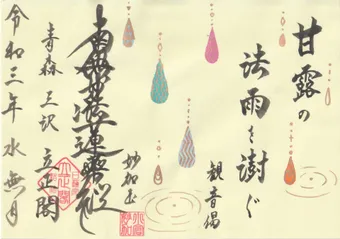 甘露の
法雨を澍ぐ
観音偈
妙加玉
南無妙法蓮華経
立正閣
青森 三沢
令和三年 水無月